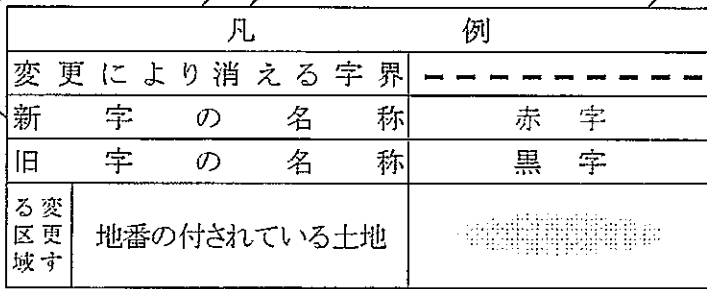 凡例
変更により消える字界
新字の名称 赤字
旧字の名称 黒字
変更する区域 地番の付されている土地